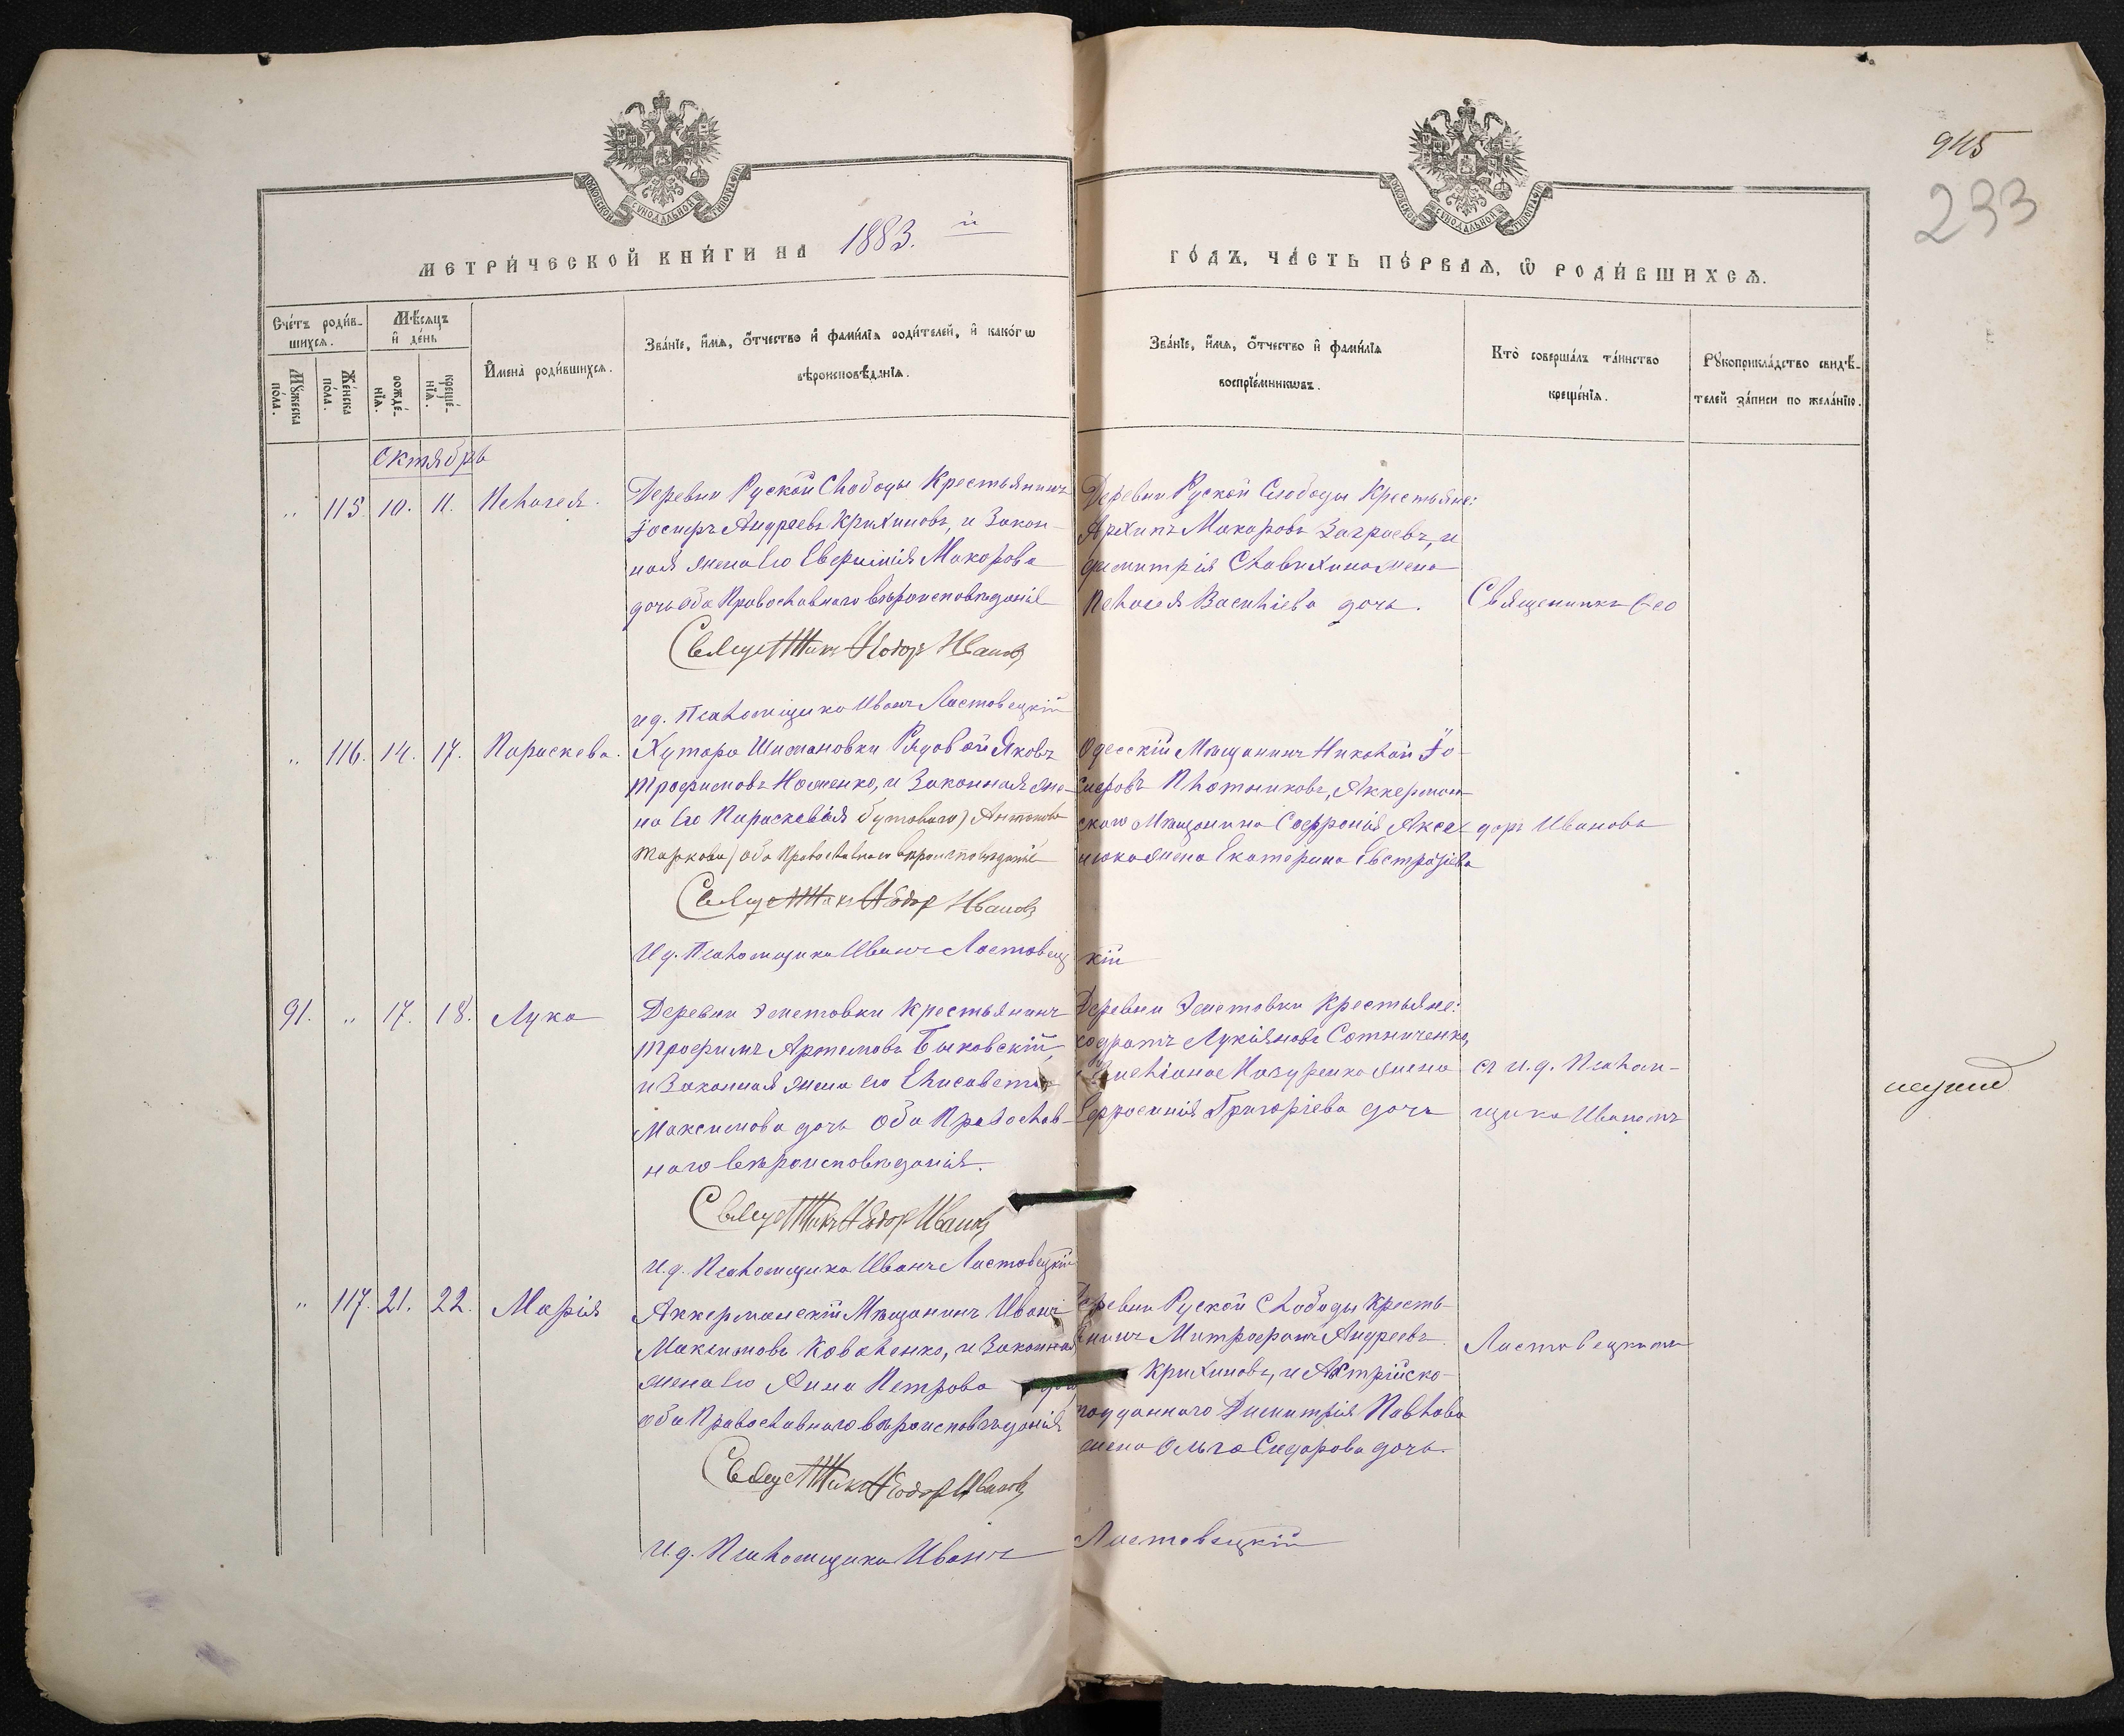 945
233
МОСКОВСКОЙ СѴНОДАЛЬНОЙ ТИПОГРАФІИ
МОСКОВСКОЙ СѴНОДАЛЬНОЙ ТИПОГРАФІИ
МЕТРИ́ЧЕСКОЙ КНИ́ГИ НА 1883. й
ГО́ДЪ, ЧА́СТЬ ПЕ́РВАѦ, Ѡ҆ РОДИ́ВШИХСѦ.
Сче́тъ роди́в-
шихсѧ.
Мѣ́сѧцъ
и҆ де́нь
Мꙋ́жеска
по́ла.
Же́нска
по́ла.
рожде́-
нїѧ.
креще́-
нїѧ.
И҆мена̀ роди́вшихсѧ.
Зва́нїе, и҆́мѧ, ѻ҆́тчество и҆ фамі́лїѧ роди́телей, и҆ како́гѡ
вѣроисповѣ́данїѧ.
Зва́нїе, и҆́мѧ, ѻ҆́тчество и҆ фамі́лїѧ
воспрїе́мникѡвъ.
Кто̀ соверша́лъ та́инство
креще́нїѧ.
Рꙋкоприкла́дство свидѣ́-
телей за́писи по жела́нїю.
Октябрь
" 115. 10. 11. Пелагея.
Деревни Руской Слободы Крестьянинъ
Іосифъ Андреевъ Крихиновъ, и Закон-
ная жена его Евфимія Макарова
дочь оба Православнаго вѣроисповѣданія
Священникъ Ѳеодоръ Ивановъ
и д. Псаломщика Иванъ Листовецкій
Деревни Руской Слободы Крестьяне:
Архипъ Макаровъ Заграевъ, и
Димитрія Славихина жена
Пелагея Василіева дочь.
Священникъ Ѳео
" 116. 14. 17. Параскева.
Хутора Шимановки Рядовой Яковъ
Трофимовъ Ноженко, и Законная же-
на его Параскевія
оба Православнаго вѣроисповѣданія
Священникъ Ѳеодоръ Ивановъ
И д. Псаломщика Иванъ Листовец кій
Одесскій Мѣщанинъ Николай Іо-
сифовъ Плотниковъ, Аккерман-
скаго Мѣщанина Софронія Аксе-
нюка жена Екатерина Евстафіева
доръ Ивановъ
91. " 17. 18. Лука
Деревни Эметовки Крестьянинъ
Трофимъ Артемовъ Быковскій
и Законная жена его Елисавета
Максимова дочь Оба Православ-
наго вѣроисповѣданія.
Священникъ Ѳеодоръ Ивановъ
И. д. Псаломщика Иванъ Листовецкій
Деревни Эметовки Крестьяне:
Кодратъ Лукіяновъ Сотниченко,
Назуренка жена
Ефросинія Григоріева дочь
съ и. д. Псалом-
щика Иваномъ
" 117. 21. 22. Марія
Аккерманскій Мѣщанинъ Иванъ
Максимовъ Коваленко, и Законная
жена его Анна Петрова дочь
оба Православнаго вѣроисповѣданія
Священникъ Ѳеодоръ Ивановъ
И. д. Псаломщика Иванъ Листовецкій
Деревни Руской Слободы Кресть-
янинъ Митрофанъ Андреевъ
Крихиновъ, и Австрійско-
подданнаго Димитрія Павлова
жена Ольга Сидорова дочь.
Листовецкимъ